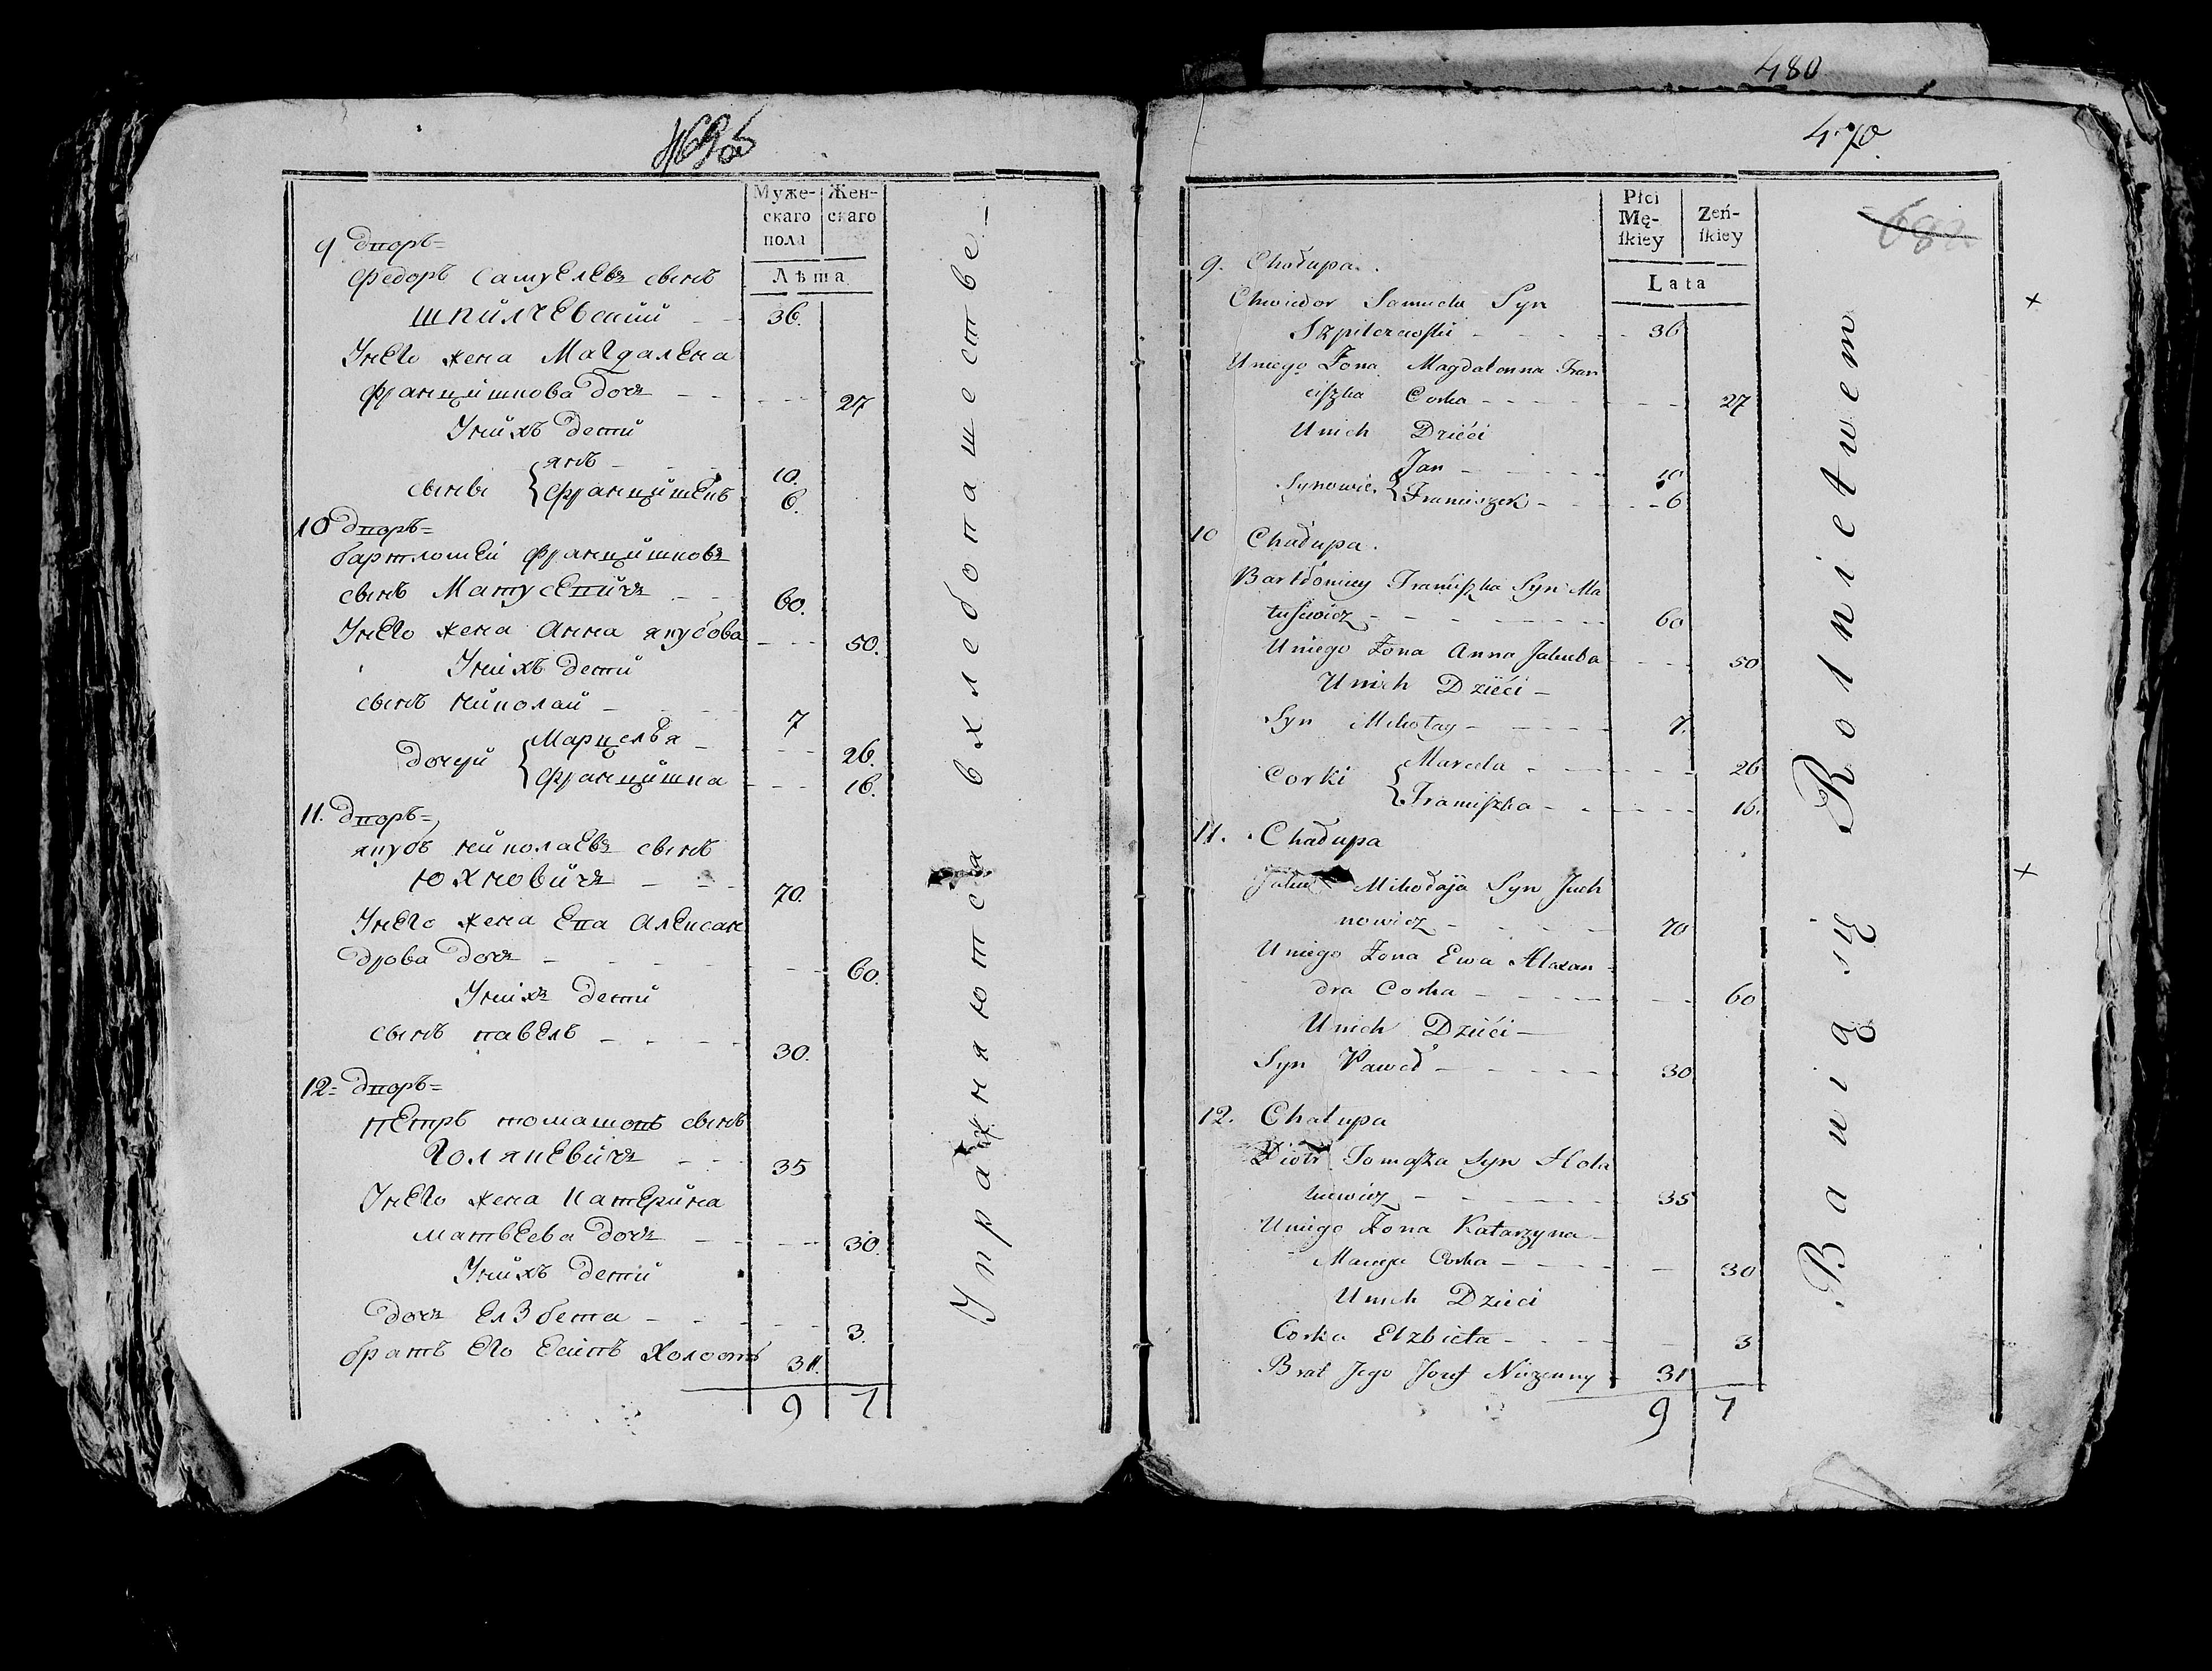 469об
Муже-
скаго
пола
Жен-
скаго
Лѣта
9 дворъ=
Федоръ Самуелевъ сынъ
Шпилчевский - - 36.
У него жена Магдалена
Францишкова дочь - - - - - 27
У нихъ дети
сыны { янъ - - - 10.
Францишекъ 6.
10 дворъ=
бартломей Францишковъ
сынъ Матусевичъ - - 60.
У него жена Анна якубова - - - 50.
У нихъ дети
сынъ николай - - - 7
дочери { Марцелья - - - - 26.
Францишка - - - 16.
11. дворъ=
якубъ николаевъ сынъ
Юхновичъ - - - 70.
У него жена Ева Алексан
дрова дочь - - - - - 60.
У нихъ дети
сынъ павелъ - - - - 30.
12= дворъ=
петръ томашовъ сынъ
Голякевичъ - - 35
У него жена Катерина
матвеева дочь - - - - - 30.
У нихъ дети
дочь Елзбета - - - - - 3.
братъ его Есипъ Холостъ 31.
9 7
Упражняются в хлебопашестве -
480
470
682
Płci
Mę-
ſkiey
Zeń-
ſkiey
Lata
9. Chałupa.
Chwiedor Samuela Syn
Szpilczewſki - - - - - 36
U niego Żona Magdalenna Fran
ciſzka Corka - - - - - - 27
U nich Dzieći
Synowie { Jan - - - - 10
Franciszek - - - - 6
10 Chałupa.
Bartłomiey Franciſzka Syn Ma
tuſewicz - - - - - - - 60
U niego Żona Anna Jakuba - - - 50
U nich Dzieći -
Syn Mikołay - - - - - 7.
Corki { Marcela - - - - - 26
Franciſzka - - - - - 16.
11. Chałupa
Jakub Mikołaja Syn Juch
nowicz - - - - - 70
U niego Żona Ewa Alexan=
dra Corka - - - - - - 60
U nich Dzieći -
Syn Paweł - - - - - 30
12. Chałupa
Piotr Tomaſza Syn Hola
kiewicz - - - - - - 35
U niego Żona Katarzyna -
Macieja Corka - - - - - 30
U nich Dzieci
Corka Elzbieta - - - - - 3
Brat Jego Jozef Nieżenny - 31
9 7
Bawią się Rolnictwem
+
+